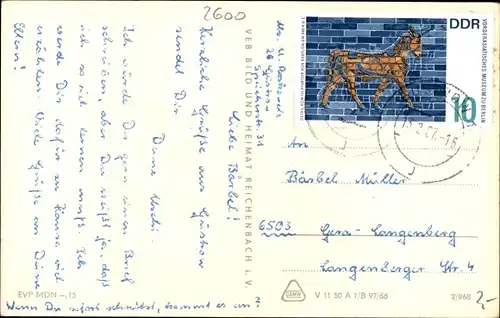 2600
Abs. U. Rostock
26 Güstrow
Liebe Bärbel!
Herzliche Grüße aus Güstrow
sendet Dir
Deine Uschi.
Ich würde Dir gern einen Brief
schreiben, aber Du weißt ja, daß
ich so viel lernen muß. Ich
werde Dir dafür zu Hause viel
erzählen. Viele Grüße an Deine
Eltern!
Wenn Du sofort schreibst, kommt es an?
EVP MDN –,15
VEB BILD UND HEIMAT REICHENBACH i. V.
VORDERASIATISCHES MUSEUM ZU BERLIN
DDR
10
An
Bärbel Müller
6503 Gera-Langenberg
Langenberger Str. 4
V 11 50 A 1/B 97/66
2/968
2,-